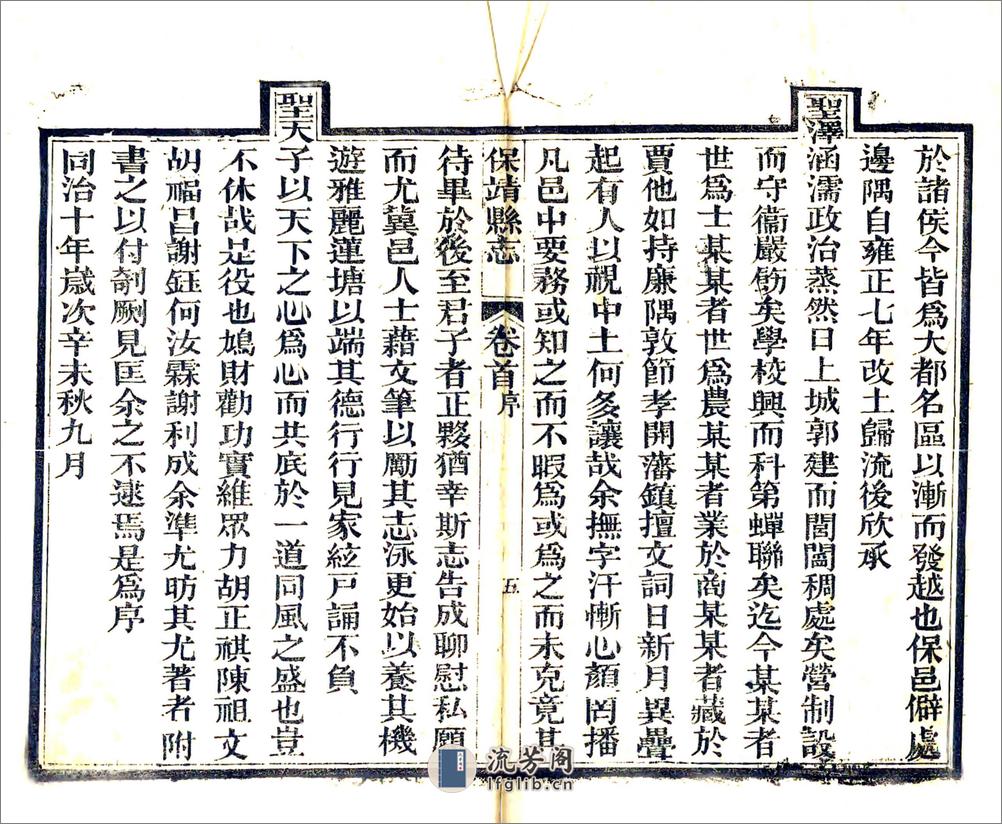 於諸侯今皆爲大都名區以漸而發越也保邑僻處
邊隅自雍正七年改土歸流後欣承
聖澤涵濡政治蒸然日上城郭建而閭閻稠處矣營制設
而守衞嚴飭矣學校興而科第蟬聯矣迄今某某者
世爲士某某者世爲農某某者業於商某某者藏於
賈他如持廉隅敦節孝開藩鎮擅文詞日新月異疊
起有人以視中土何多讓哉余撫字汗慚心顏罔播
凡邑中要務或知之而不暇爲或爲之而未克竟其
保靖縣志
卷首
序
五
待畢於後至君子者正夥猶幸斯志告成聊慰私願
而尤冀邑人士藉文筆以勵其志泳更始以養其機
遊雅麗蓮塘以端其德行行見家絃戸誦不負
聖天子以天下之心爲心而共底於一道同風之盛也豈
不休哉是役也鳩財勸功實維眾力胡正祺陳祖文
胡福昌謝鈺何汝霖謝利成余準尤昉其尤著者附
書之以付剞劂見匡余之不逮焉是爲序
同治十年歲次辛未秋九月
流芳閣
lfglib.cn